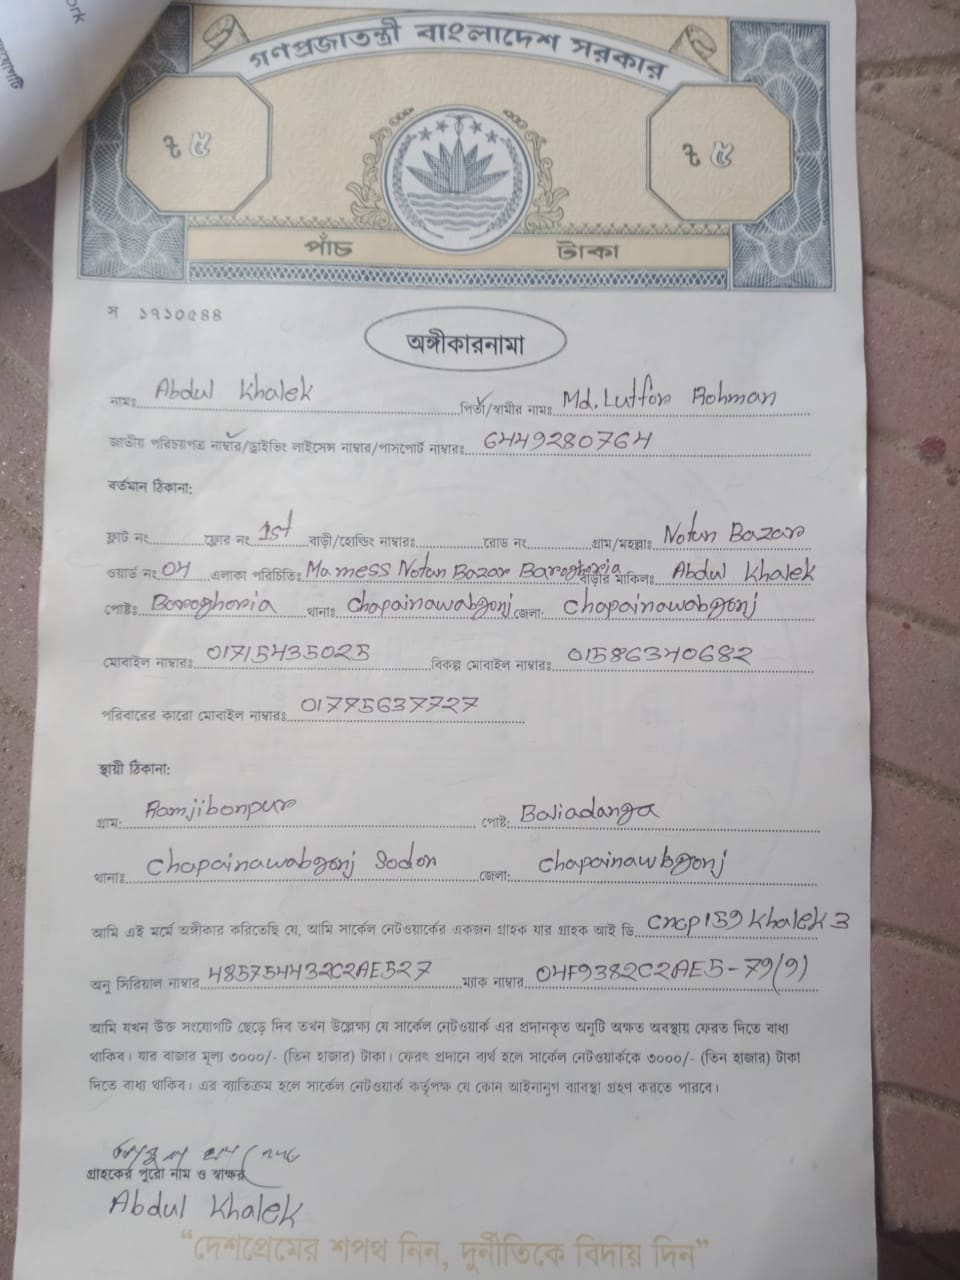 ork
যোগটি
গণপ্রজাতন্ত্রী বাংলাদেশ সরকার
৳ ৫ ৳ ৫
পাঁচ টাকা
স ১৭১০৫৪৪
অঙ্গীকারনামা
নামঃ Abdul Khalek পিতা/স্বামীর নামঃ Md. Lutfor Rohman
জাতীয় পরিচয়পত্র নাম্বার/ড্রাইভিং লাইসেন্স নাম্বার/পাসপোর্ট নাম্বারঃ 6449280764
বর্তমান ঠিকানা:
ফ্লাট নং ফ্লোর নং 1st বাড়ী/হোল্ডিং নাম্বারঃ রোড নং গ্রাম/মহল্লাঃ Notun Bazar
ওয়ার্ড নং 04 এলাকা পরিচিতিঃ Mamess Notun Bazar Baroghoria বাড়ীর মালিকঃ Abdul Khalek
পোষ্টঃ Baroghoria থানাঃ Chapainawabgonj জেলা: Chapainawabgonj
মোবাইল নাম্বারঃ 01715435025 বিকল্প মোবাইল নাম্বারঃ 01586340682
পরিবারের কারো মোবাইল নাম্বারঃ 01775637727
স্থায়ী ঠিকানা:
গ্রাম: Ramjibonpur পোষ্ট: Baliadanga
থানাঃ Chapainawabgonj Sodor জেলা: Chapainawbgonj
আমি এই মর্মে অঙ্গীকার করিতেছি যে, আমি সার্কেল নেটওয়ার্কের একজন গ্রাহক যার গ্রাহক আই ডি cncp159khalek3
অনু সিরিয়াল নাম্বার 485754432C2AE527 ম্যাক নাম্বার 04F9382C2AE5-79(9)
আমি যখন উক্ত সংযোগটি ছেড়ে দিব তখন উল্লেক্ষ্য যে সার্কেল নেটওয়ার্ক এর প্রদানকৃত অনুটি অক্ষত অবস্থায় ফেরত দিতে বাধ্য
থাকিব। যার বাজার মূল্য ৩০০০/- (তিন হাজার) টাকা। ফেরৎ প্রদানে ব্যর্থ হলে সার্কেল নেটওয়ার্ককে ৩০০০/- (তিন হাজার) টাকা
দিতে বাধ্য থাকিব। এর ব্যতিক্রম হলে সার্কেল নেটওয়ার্ক কর্তৃপক্ষ যে কোন আইনানুগ ব্যাবস্থা গ্রহণ করতে পারবে।
গ্রাহকের পুরো নাম ও স্বাক্ষর
Abdul Khalek
“দেশপ্রেমের শপথ নিন, দুর্নীতিকে বিদায় দিন”